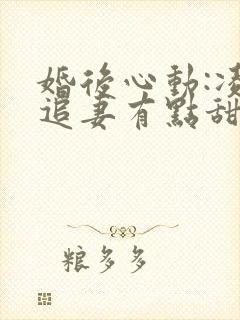 婚後心動:凌
追妻有點甜
粮多多